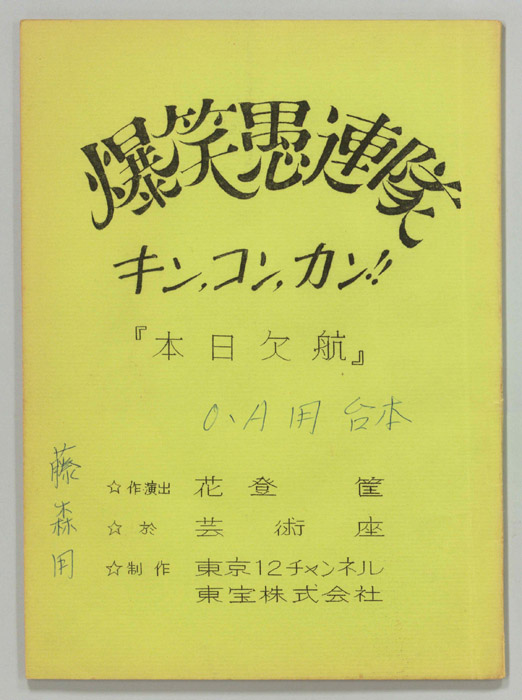 爆笑愚連隊
キン,コン,カン!!
『本日欠航』
O、A用台本
藤森用
☆作演出 花登筺
☆於 芸術座
☆制作 東京12チャンネル
東宝株式会社